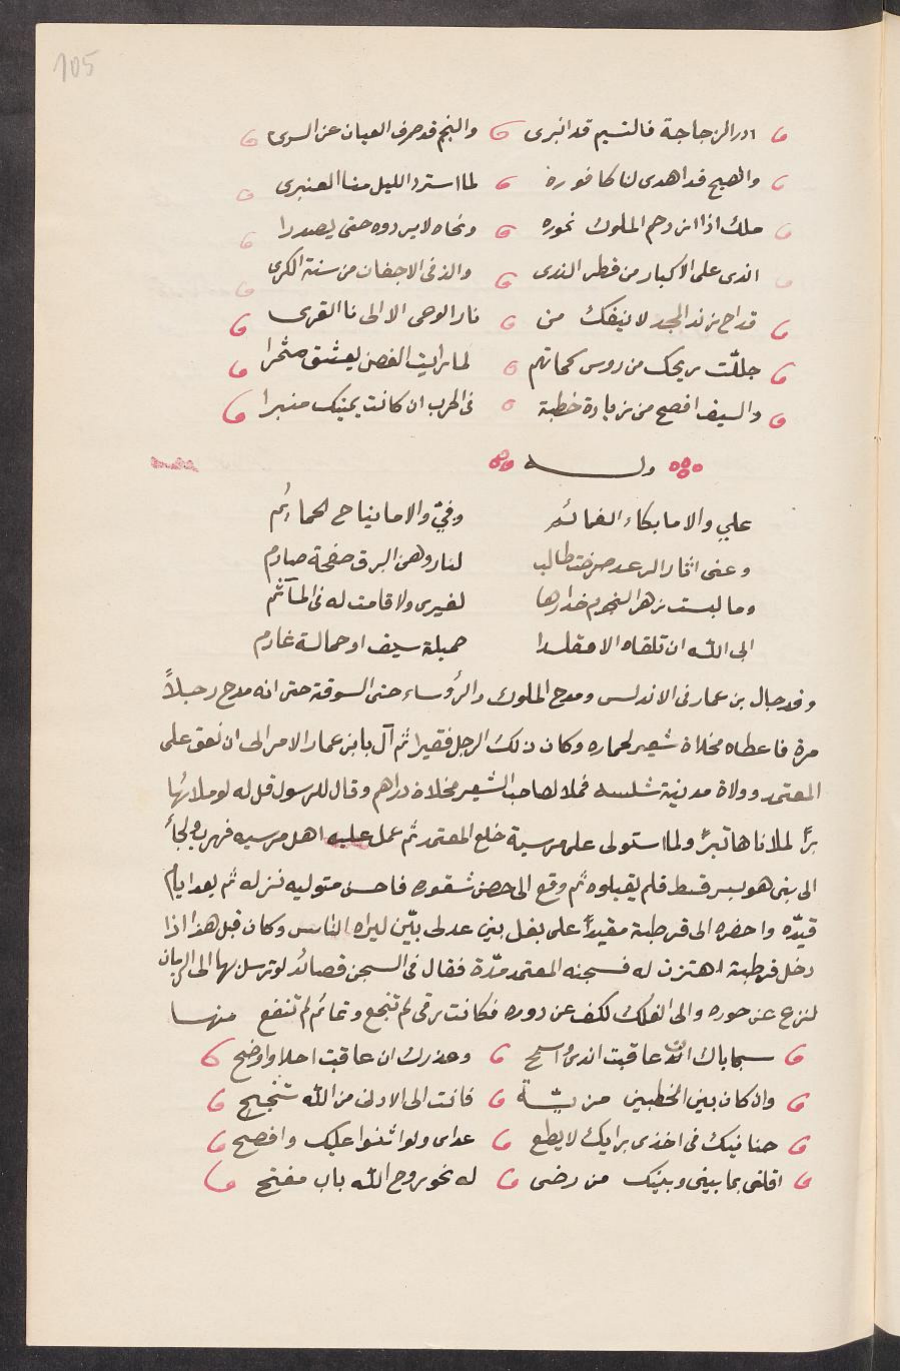 105
ادر الزجاجة فالنسيم قد انبرى والنجم قد صرف العيان عن السرى
والصبح قد اهدى لنا كافوره لما استرد الليل منا العنبرى
ملك اذا ازدحم الملوك نحوره ونحاه لا يردوه حتى يصدرا
اندى على الاكبار من قطر الندى والذ فى الاجفان من سنة الكرى
قداح زند المجد لا ينفك من نار الوحى الا الى نا القرى
جللت رمحك من روس كماتهم لما رايت الغصن يعشق مثمرا
والسيف افصح من زيادة خطبة فى الحرب ان كانت يمينك منبرا
وله
علي والا ما بكاء الغمائم وفيّ والا ما نياح الحمائم
وعنى اثار الرعد صرخة طالب لثار وهز البرق صفحة صارم
وما لبست زهر النجوم حدادها لغيرى ولا قامت له فى المآثم
ابى الله ان تلقاه الا مقلدا حميلة سيف او حمالة غارم
وقد جال بن عمار فى الاندلس ومدح الملوك والرؤساء حتى السوقة حتى انه مدح رجلاً
مرة فاعطاه مخلاة شعير لحماره وكان ذلك الرجل فقيرا ثم آل بابن عمار الامر الى ان نعق على
المعتمد وولاة مدينة شلبه فملا لصاحب الشعير مخلاة دراهم وقال للرسول قل له لو ملائها
برًا لملاناها تبرًا ولما استولى على مرسية خلع المعتمد ثم عمل عليه اهل مرسيه فهرب ولجأ
الى بنى هود بسرقسط فلم يقبلوه ثم وقع الى حصن شقوره فاحسن متوليه نزله ثم بعد ايام
قيّده واحضره الى قرطبة مقيدًا على بغل بين عدلى تبّن ليراه الناس وكان قبل هذا اذا
دخل قرطبة اهتزت له فسجنه المعتمد مدّة فقال فى السجن قصائد لو ترسل بها الى الزمان
لنزع عن جوره والى الفلك لكف عن دوره فكانت رقى لم تنجع وتمائم لم تنفع منها
سجاياك ان عاقبت اندى واسمح وعذرك ان عاقبت احلا واوضح
وان كان بين الخطبين مزيّة فانت الى الادنى من الله تنجيح
حنانيك فى اخذى برايك لا يطع عداى ولو اثنوا عليك وافصح
اقلنى بما بينى وبينك من رضى له نحو روح الله باب مفتح